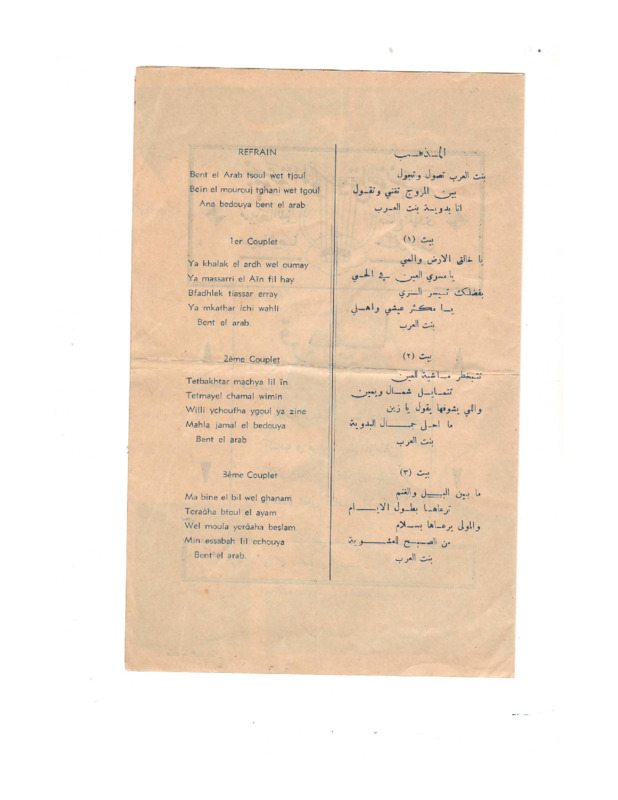 REFRAIN
Bent el Arab tsoul wet tjoul
Beïn el mourouj tghani wet tgoul
Ana bedouya bent el arab
1er Couplet
Ya khalak el ardh wel oumay
Ya massarri el Aïn fil hay
Bfadhlek tiassar erray
Ya mkathar ichi wahli
Bent el arab.
2ème Couplet
Tetbakhtar machya lil în
Tetmayel chamal wimin
Willi ychoufha ygoul ya zine
Mahla jamal el bedouya
Bent el arab
3ème Couplet
Ma bine el bil wel ghanam
Teraàha btoul el ayam
Wel moula yerâaha beslam
Min essabah lil echouya
Bent el arab.
المذهب
بنت العرب تصول وتجول
بين المروج تغني وتقول
انا بدوية بنت العرب
بيت (١)
يا خالق الارض والمي
يا مسري العين في الحي
بفضلك تيسر السري
يا مكثر عيشي واهلي
بنت العرب
بيت (٢)
تتبخطر ماشية للعين
تتمايل شمال ويمين
واللي يشوفها يقول يا زين
ما احلى جمال البدوية
بنت العرب
بيت (٣)
ما بين البيل والغنم
ترعاها بطول الايام
والمولى يرعاها بسلام
من الصبح للعشوية
بنت العرب